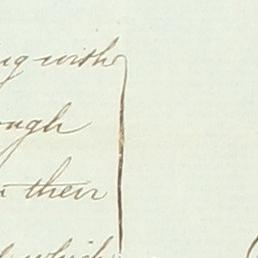 ng with
ough
their
which